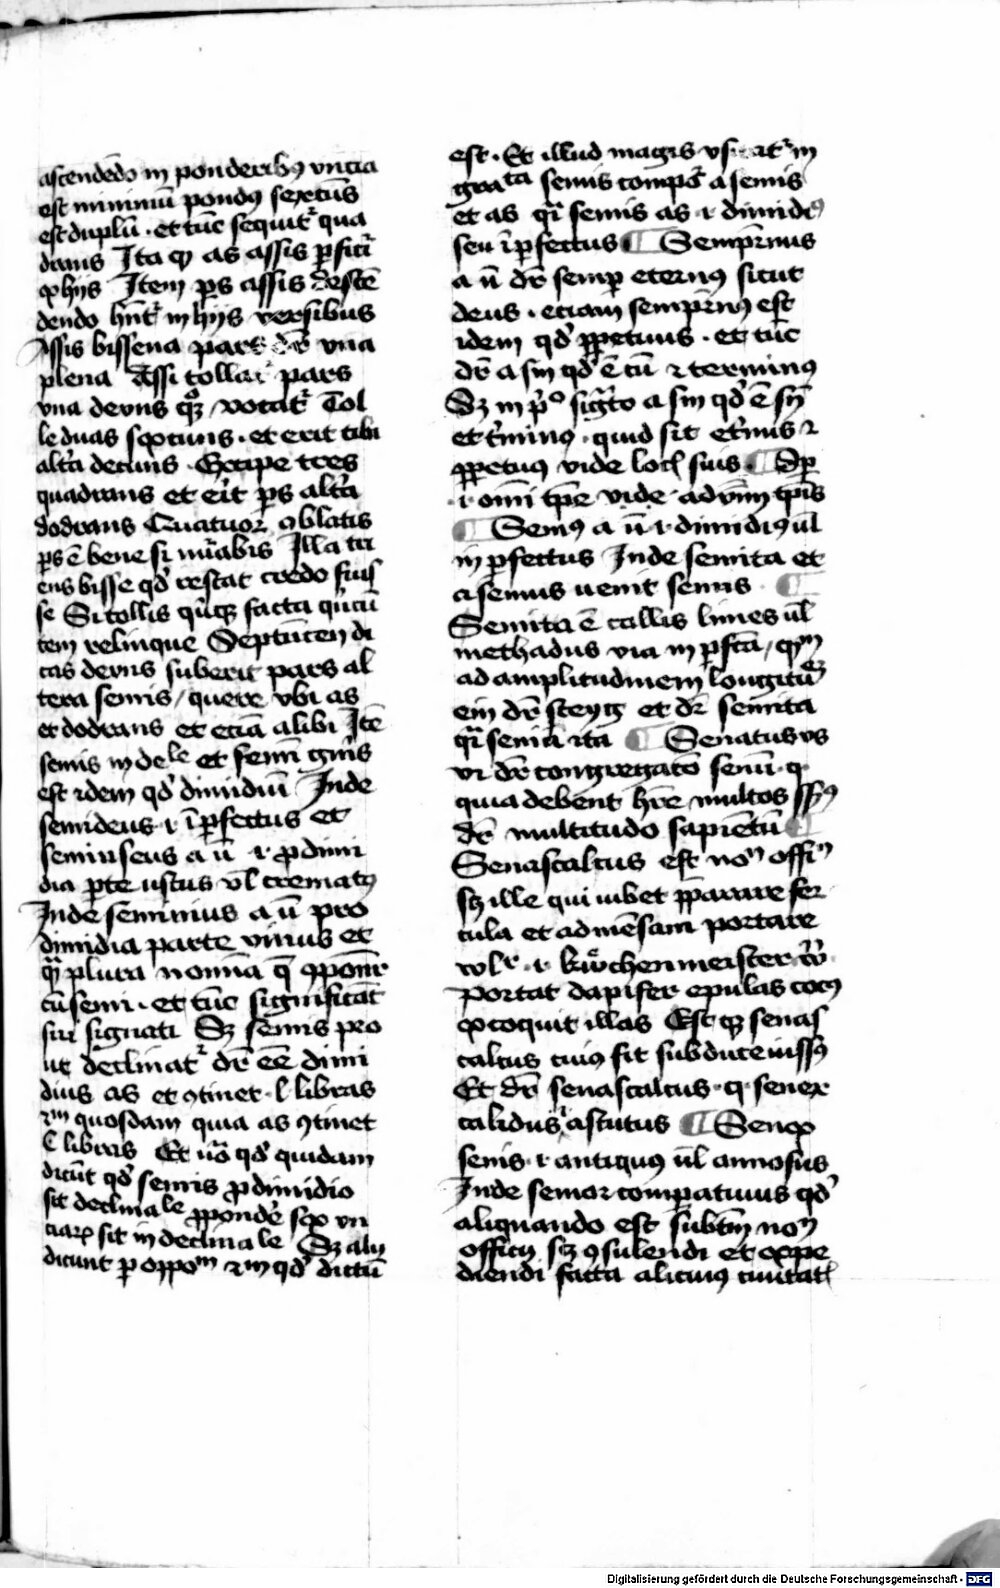 ascendēdo in ponderibꝰ vncia
est minimū pondꝰ sextūs
est duplū · et tūc sequitᷣ qua
drans Ita ꝙ as assis ꝑficiᷣ
ex hijs Item ꝑs assis descē
dendo hn̄tᷣ in hijs versibus
Assis bissena pars dr̄ vna
plena Assi tollat pars
vna deuns qꝫ votatᷣ Tol
le duas sextans · et erit tibi
altā decuns · Excipe tres
quadrans et eīt ꝑs altā
dodrans Quatuor ablatis
ꝑs ē bene si nūabis Illa tri
ens bisse qd̓ restat credo fuis
se Si tollis qͥnqꝫ facta qͥncū
cem relinque Septūcen di
cas deuns suberit pars al
tera semis / quere vbi as
et dodrans et eciā alibi Itē
semis indele et femī gn̄is
est idem qd̓ dimidiū Inde
semideus ·i· īꝑfectus et
seminseus a ū ·i· ꝓ dimi
dia ꝑte ustus vl̄ crematꝰ
Inde semiuius a ū pro
dimidia parte viuus et
plura nomīa
cū semi · et tūc significāt
sui signati Sꝫ semis pro
ut declinatᷣ dr̄ eē dimi
dius as et ꝯtinet · l libras
quosdam quia as ꝯtinet
C libras Et uō qd̓ quidam
dicūt qd̓ semis ꝓ dimidio
sit declinale sex vn
ciaꝝ sit indeclinale Sꝫ alij
dicunt ꝑ oppoᵐ dictū
est · Et illud magis in
gͣmatᷓ semis compō a semis
et as qͣi semis as ·i· dimidiꝰ
seu īꝑfectus ¶ Sempīnus
a ū dr̄ semꝑ eternꝰ sicut
deus · eciam sempīnꝰ est
idem qd̓ ꝑpetuus · et tūc
dr̄ a sin̄ qd̓ ē cū ⁊ terminꝰ
Sꝫ in pͦ sigͣto a sin̄ qd̓ ē sn̄
et t̄minꝰ · quid sit et̓nus ⁊
ꝑpetuꝰ vide locꝭ suis ¶
·i· omī tꝑe vide
¶ Semꝰ a ū ·i· dimidiꝰ ul̄
inꝑfectus Inde semita et
a semus uenit semis ¶
Semita ē callis limes ul̄
methadus via inꝑfcā /
ad amplitudinem longitu
em dr̄ steyg et dr̄ semita
qͣi semia ita ¶ Senatus us
vi dr̄ congregatō senū · qͥ
quia debent hr̄e multos
dr̄ multitudo sapiētū ¶
Senascalcus est noⁿ offiⁿ
sꝫ ille qui iubet ꝑparare fer
cula et ad mēsam portare
volᷣ ·i· kuͤchenmeister
Portat dapifer epulas cocꝰ
excoquit illas Est qꝫ senas
calcus cuiꝰ fit sub duce iussꝰ
Et dr̄ senascalcus · qͥ senex
calidus ul̄ astutus ¶ Senex
senis ·i· antiquꝰ ul̄ annosus
Inde senior comparatiuus qd̓
aliquando est subm̄ noⁿ
officij sꝫ ꝯsulendi et expe
diendi facta alicuiꝰ ciuitatꝭ
Digitalisierung gefördert durch die Deutsche Forschungsgemeinschaft - DFG